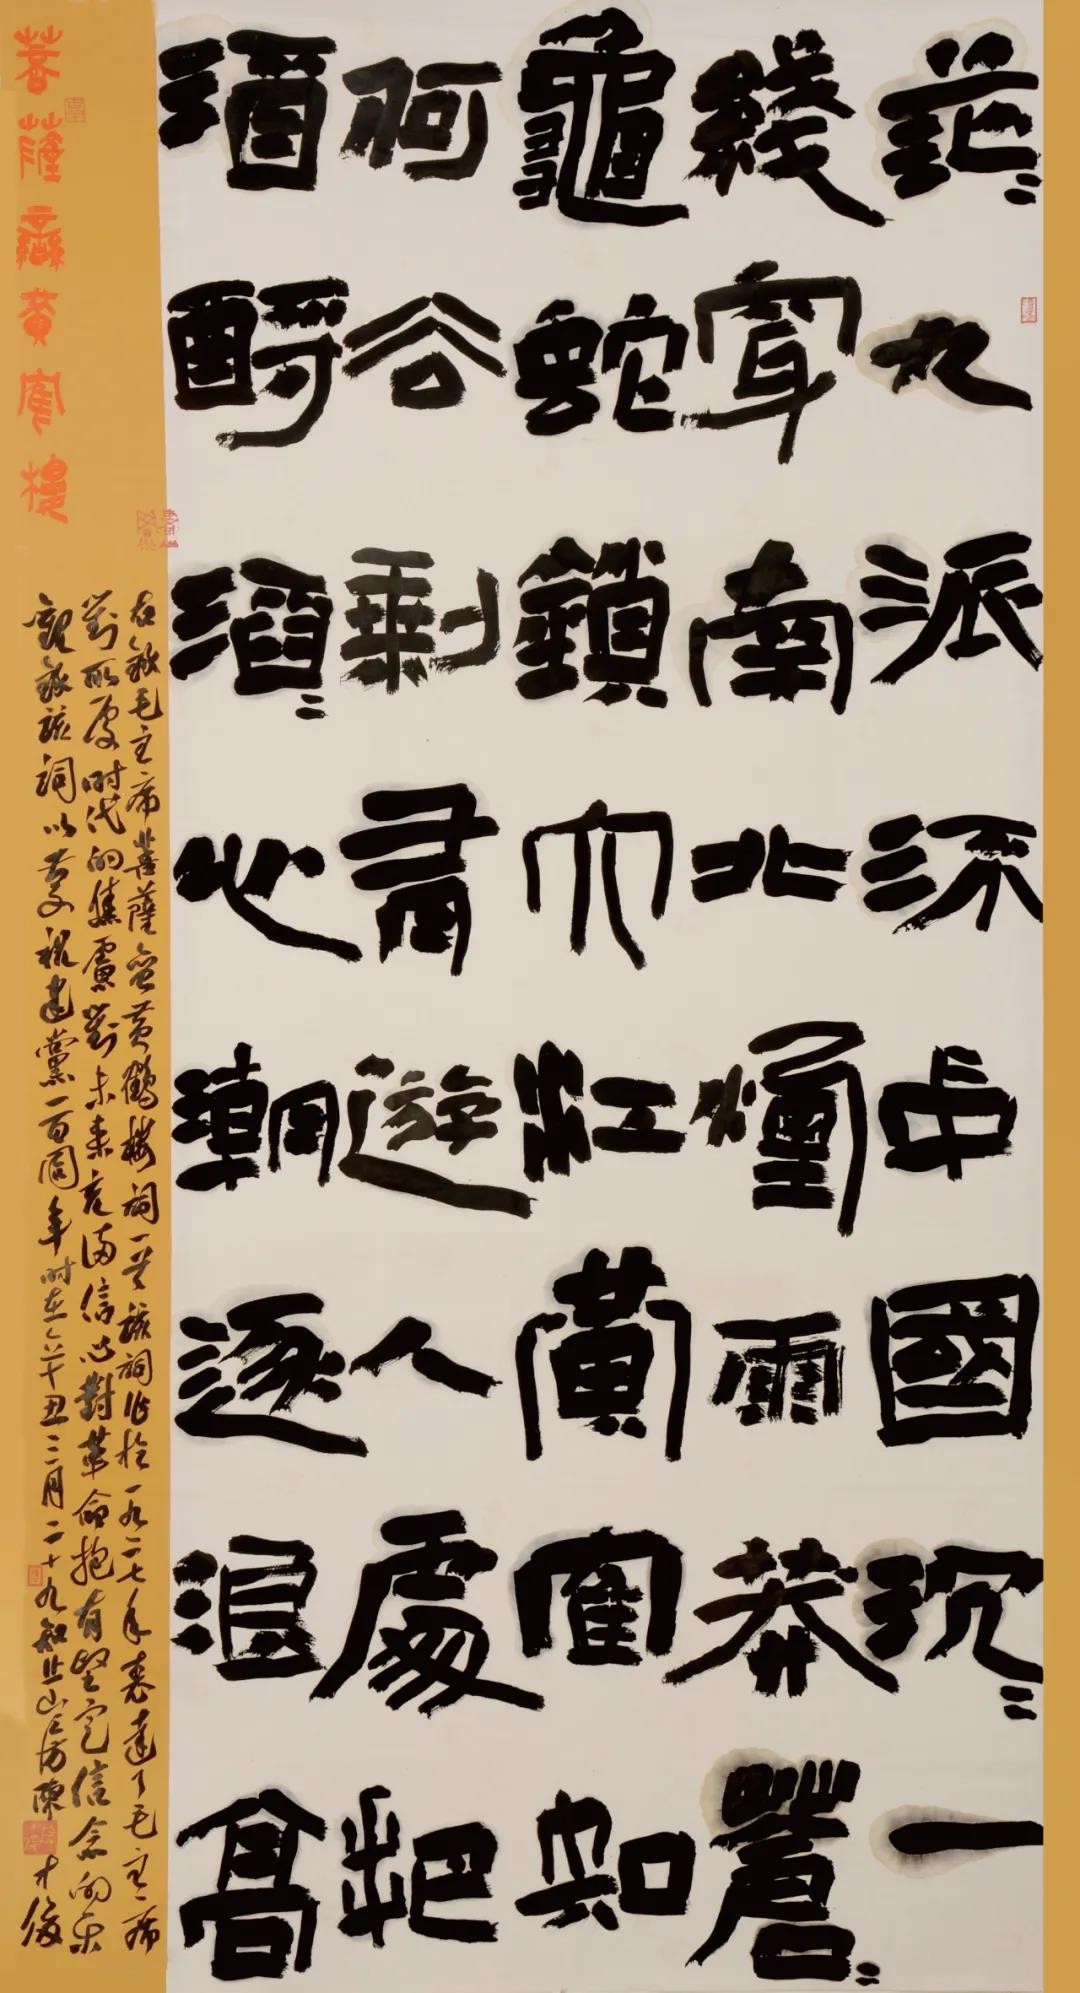 茫〻九派流中國沉〻一
綫穿南北煙雨莽蒼〻
龜蛇鎖大江黃隺知
何去剩有遊人處把
酒酹滔〻心潮逐浪高
菩薩蠻黃隺樓
右錄毛主席菩薩蠻黃鶴樓詞一首該詞作於一九二七年表達了毛主席
對所處时代的焦慮對未來充滿信心對革命抱有堅定信念的樂
觀錄該詞以慶祝建黨一百周年时在辛丑三月二十九知止山房陳才俊